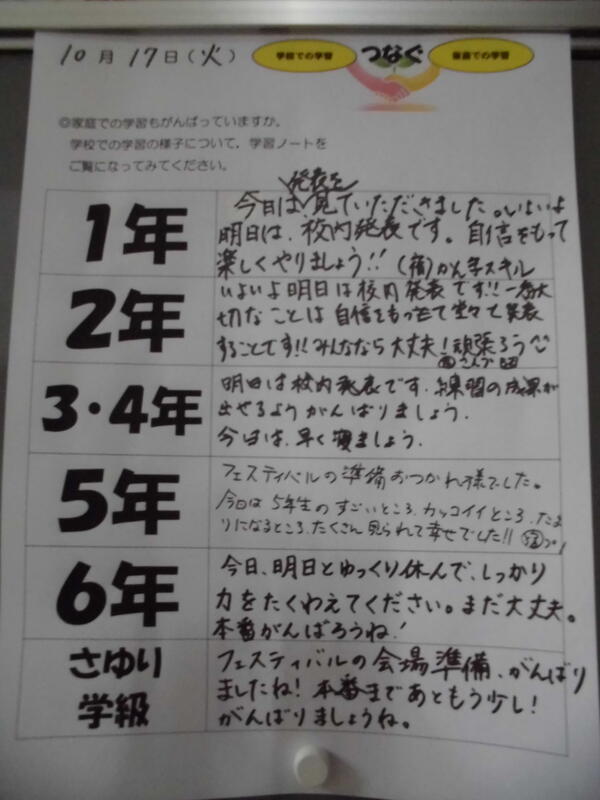 10月17日(火)
学校での学習 つなぐ 家庭での学習
◎家庭での学習もがんばっていますか。
学校での学習の様子について、学習ノートを
ご覧になってみてください。
1年
発表を
今日は、見ていただきました。いよいよ
明日は、校内発表です。自信をもって
楽しくやりましょう!! (宿)かん字スキル
2年
いよいよ明日は校内発表です!!一番大
切なことは自信をもって堂々と発表
することです!!みんななら大丈夫!頑張ろう
3・4年
明日は校内発表です。練習の成果が
出せるようがんばりましょう。
今日は、早く寝ましょう。
5年
フェスティバルの準備おつかれ様でした。
今日は5年生のすごいところ、カッコイイところ、たよ
りになるところ、たくさん見られて幸せでした!! 宿プリ
6年
今日、明日とゆっくり休んで、しっかり
力をたくわえてください。まだ大丈夫。
本番がんばろうね!
さゆり
学級
フェスティバルの会場準備、がんばり
ましたね!本番まであともう少し!
がんばりましょうね。